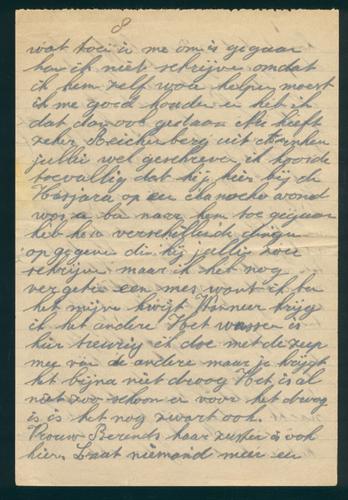 8
wat toen in me om is gegaan
kan ik niet schrijven omdat
ik hem zelf wou helpen moest
ik me goed houden en heb ik
dat dan ook gedaan Me heeft
zeker Reichenberg uit
jullie wel geschreven ik hoorde
toevallig dat hij hier bij de
op een avond
was en ben naar hem toe gegaan
heb hem verschillende dingen
op gegeven die hij jullie zou
schrijven maar ik het nog
vergeten een mes want ik ben
het mijne kwijt Wanneer krijg
ik het andere Het wassen is
hier treurig ik doe met de zeep
mee van de andere maar je krijgt
het bijna niet droog Het is al
niet zoo schoon en voor het droog
is is het nog zwart ook.
Vrouw Berends haar zuster is ook
hier. Laat niemand meer en